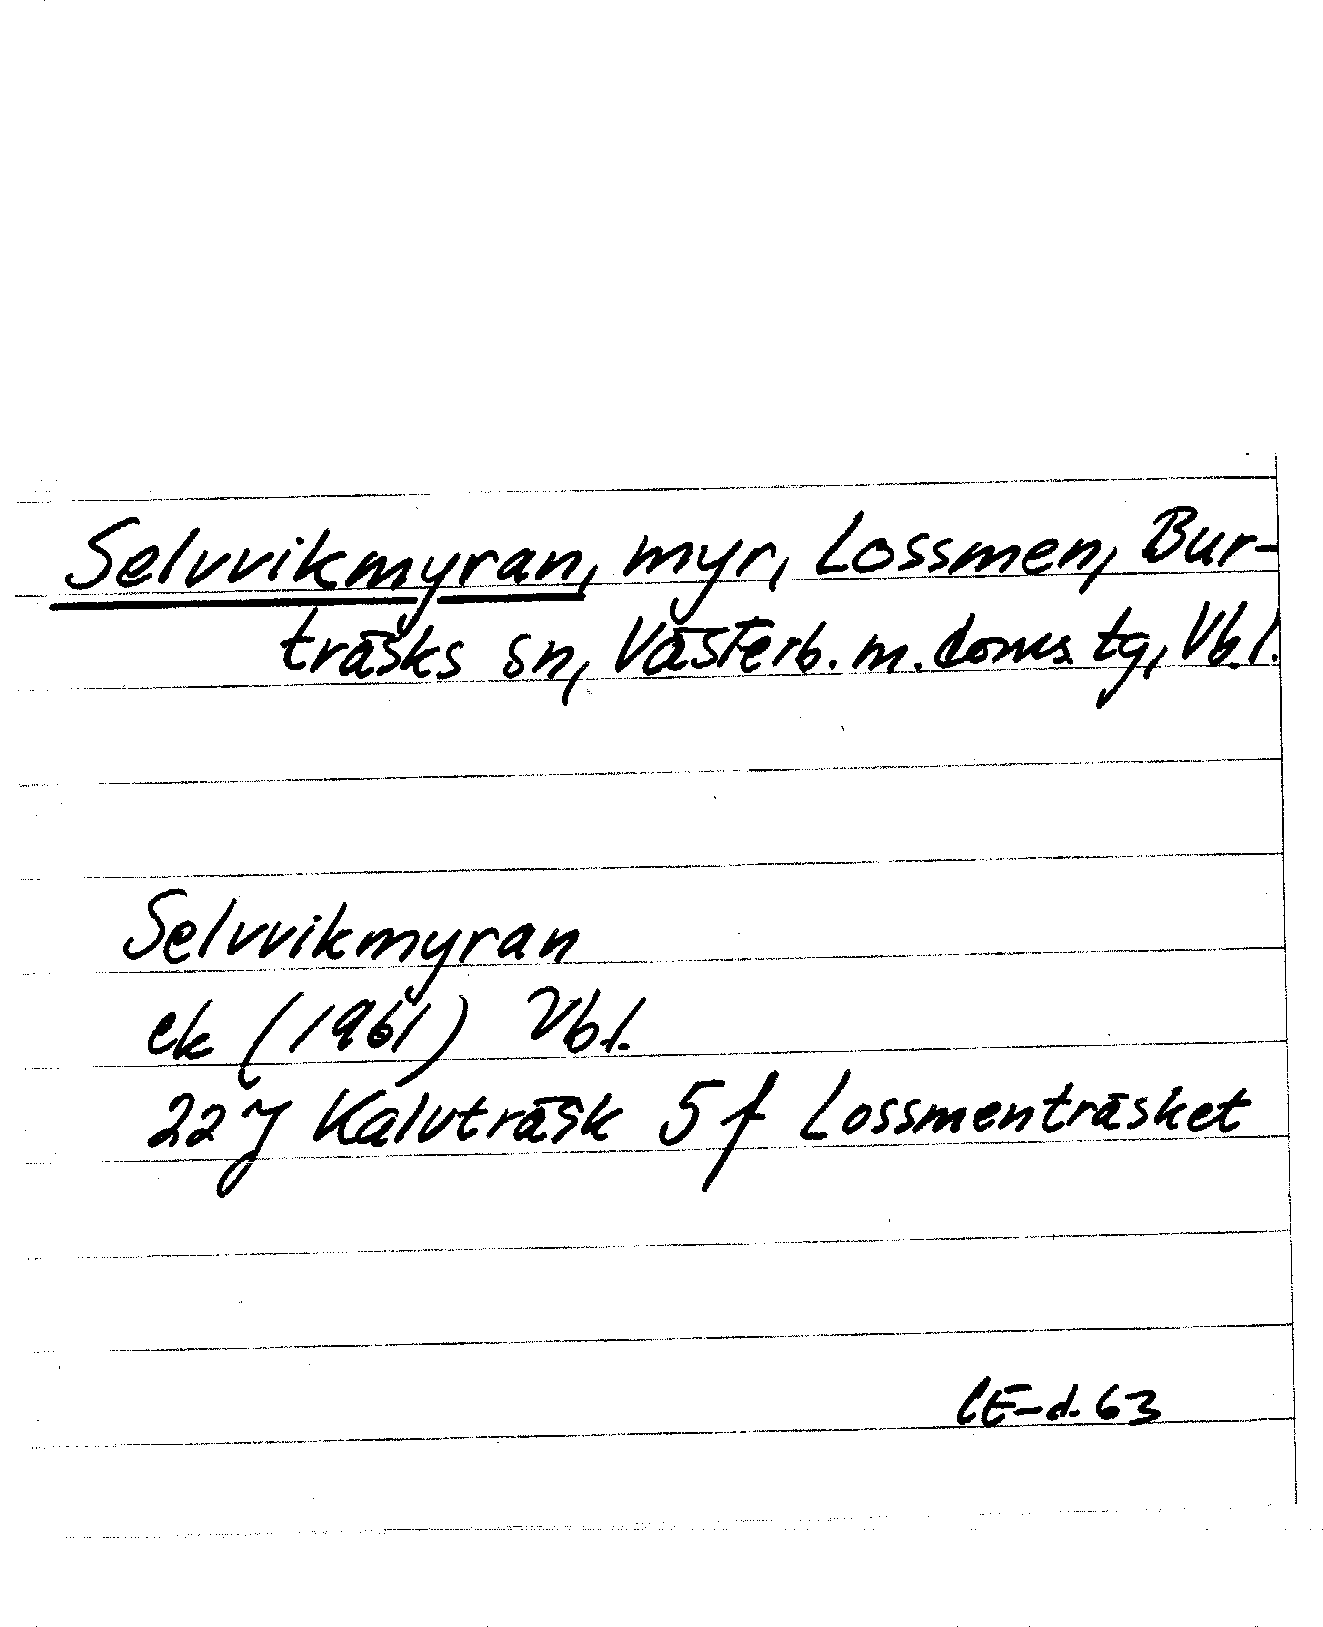 Selvvikmyran, myr, Lossmen, Bur-
träsks sn, Västerb. m. doms. tg, Vb. l.
Selvvikmyran
ek (1961) Vb l.
22 J Kalvträsk 5 f Lossmenträsket
CE-d. 63